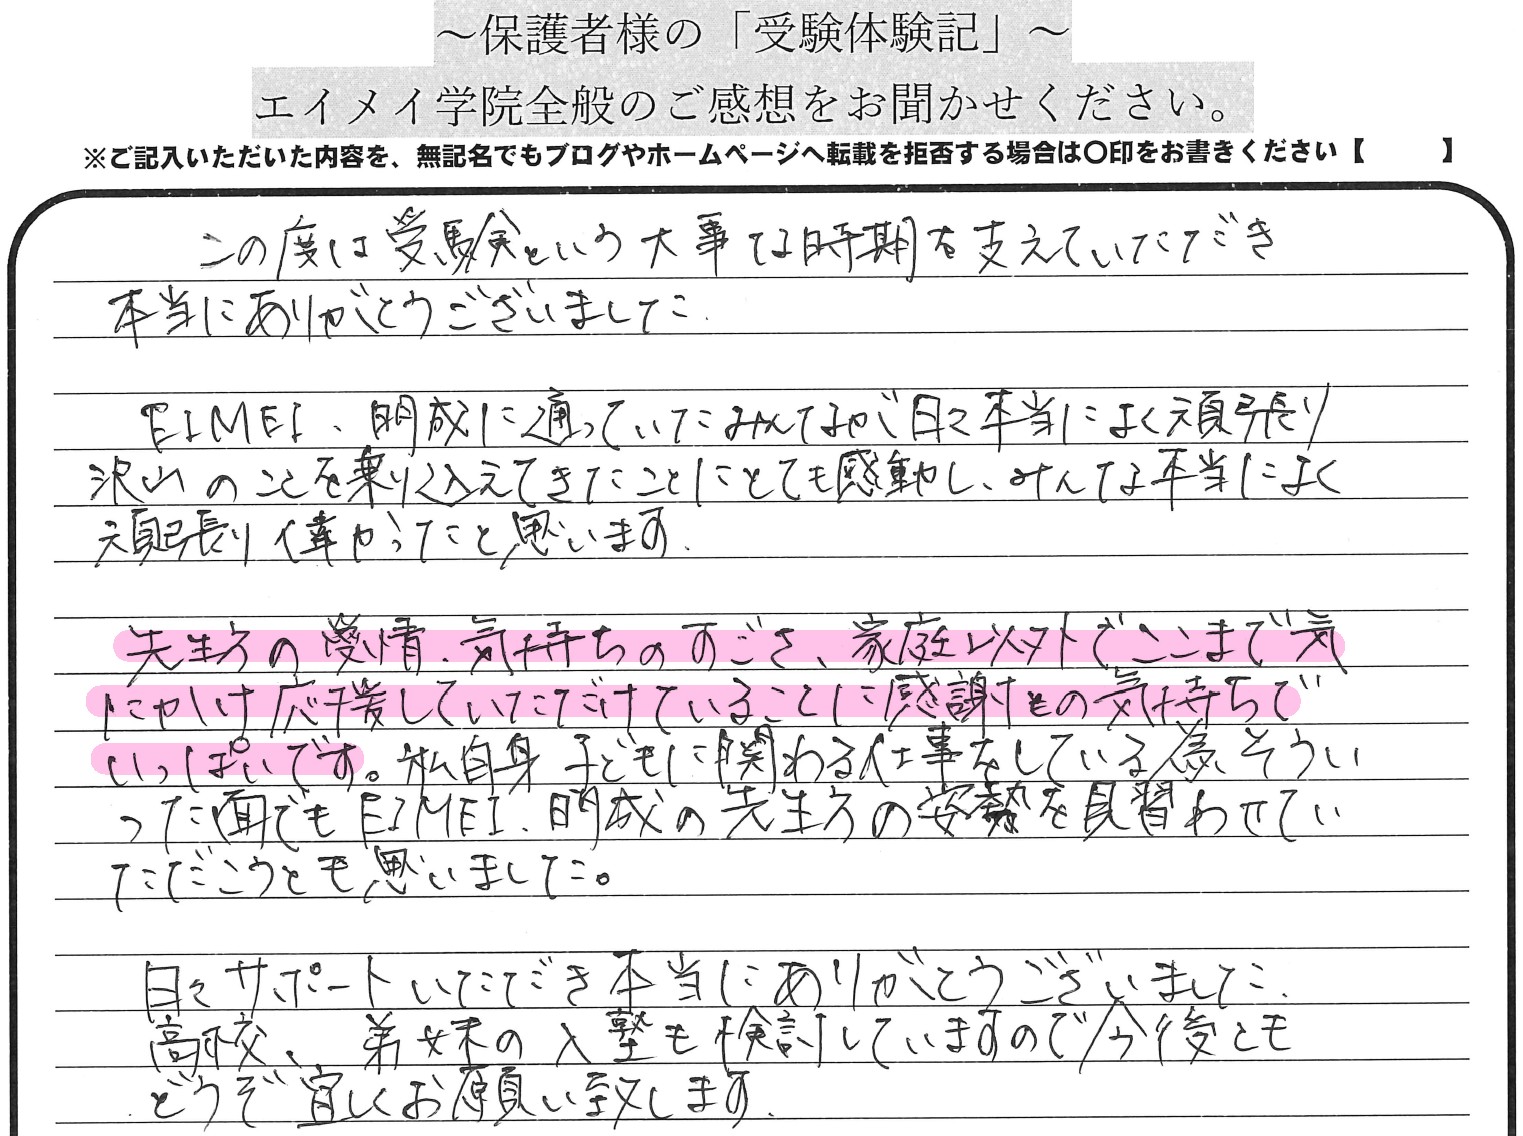 ～保護者様の「受験体験記」～
エイメイ学院全般のご感想をお聞かせください。
※ご記入いただいた内容を、無記名でもブログやホームページへ転載を拒否する場合は〇印をお書きください【　　】
この度は受験という大事な時期を支えていただき
本当にありがとうございました.
EIMEI、明成に通っていたみんなが日々本当によく頑張り
沢山のことを乗り込えてきたことにとても感動し、みんな本当によく
頑張り偉かったと思います.
先生方の愛情、気持ちのすごさ、家庭以外でここまで気
にかけ応援していただけていることに感謝の気持ちで
いっぱいです。私自身 子どもに関わる仕事をしている為、そうい
った面でもEIMEI、明成の先生方の姿勢を見習わせてい
ただこうとも思いました。
日々サポートいただき本当にありがとうございました.
高校、弟妹の入塾も検討していますので今後とも
どうぞ宜しくお願い致します.